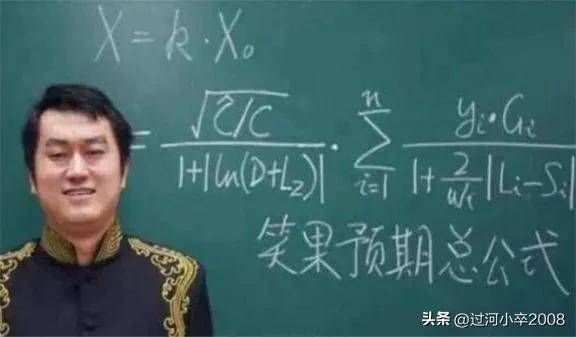 X = k · X₀
= √(Ĉ/C) / (1+|ln(D+L₂)|) · Σ(i=1→n) yᵢ·Gᵢ / (1+ 2/wᵢ |Lᵢ-Sᵢ|)
笑果预期总公式
头条 @过河小卒2008